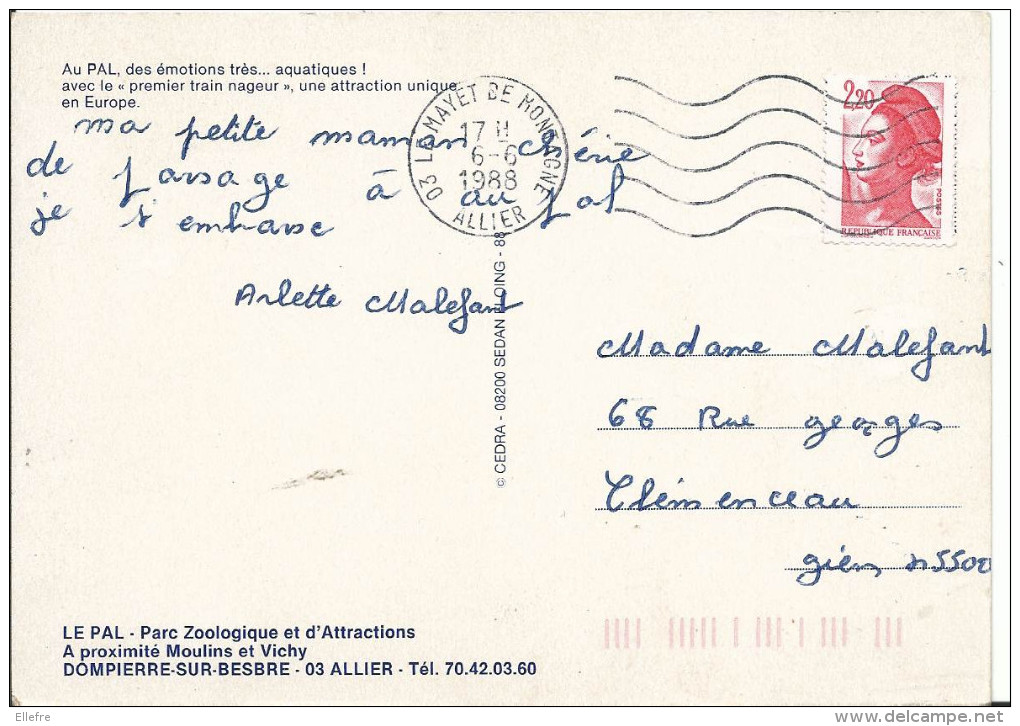 Au PAL, des émotions très... aquatiques !
avec le « premier train nageur », une attraction unique
en Europe.
ma petite maman chérie
de passage à au pal
je t'embrasse
Arlette Malefant
03 LE MAYET DE MONTAGNE
17 H
6-6
1988
ALLIER
2,20
POSTES
REPUBLIQUE FRANÇAISE
© CEDRA - 08200 SEDAN - 88
Madame Malefant
68 Rue georges
Clémenceau
gien
LE PAL - Parc Zoologique et d'Attractions
A proximité Moulins et Vichy
DOMPIERRE-SUR-BESBRE - 03 ALLIER - Tél. 70.42.03.60
Ellefre
www.delcampe.net